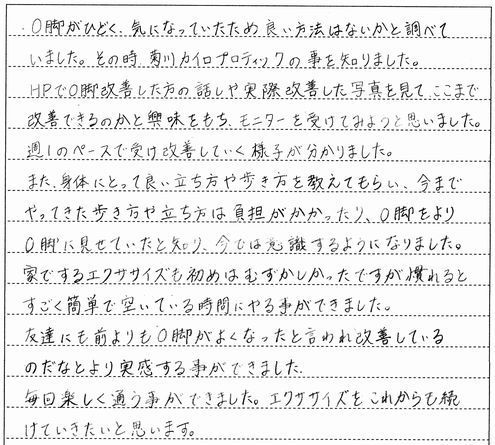 O脚がひどく、気になっていたため良い方法はないかと調べて
いました。その時、菊川カイロプロティックの事を知りました。
HPでO脚改善した方の話しや実際改善した写真を見て、ここまで
改善できるのかと興味をもち、モニターを受けてみようと思いました。
週1のペースで受け改善していく様子が分かりました。
また、身体にとって良い立ち方や歩き方を教えてもらい、今まで
やってきた歩き方や立ち方は負担がかかったり、O脚をより
O脚に見せていたと知り、今では意識するようになりました。
家でするエクササイズも初めはむずかしかったですが慣れると
すごく簡単で空いている時間にやる事ができました。
友達にも前よりもO脚がよくなったと言われ改善している
のだなとより実感する事ができました.
毎回楽しく通う事ができました。エクササイズをこれからも続
けていきたいと思います。